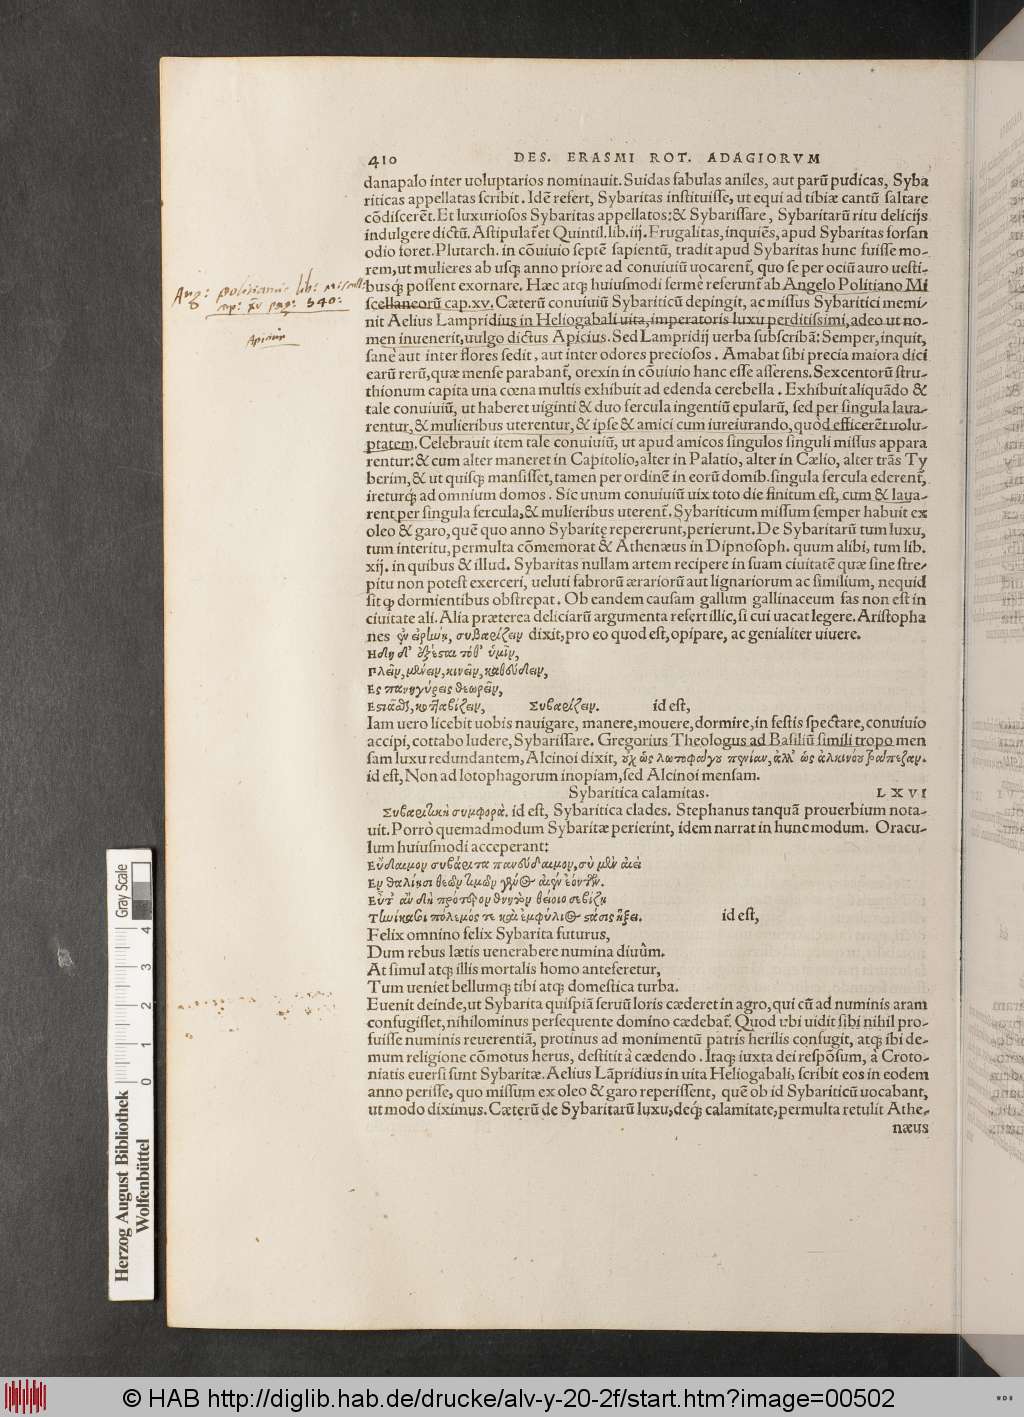 410 DES. ERASMI ROT. ADAGIORVM
danapalo inter uoluptarios nominauit. Suidas fabulas aniles, aut parũ pudicas, Syba
riticas appellatas scribit. Idẽ refert, Sybaritas instituisse, ut equi ad tibiæ cantũ saltare
cõdiscerẽt. Et luxuriosos Sybaritas appellatos: & Sybarissare, Sybaritarũ ritu delicijs
indulgere dictũ. Astipulat̃ et Quintil. lib. iij. Frugalitas, inquiẽs, apud Sybaritas forsan
odio foret. Plutarch. in cõuiuio septẽ sapientũ, tradit apud Sybaritas hunc fuisse mo-
rem, ut mulieres ab usq; anno priore ad conuiuiũ uocarent̃, quo se per ociũ auro uesti-
busq; possent exornare. Hæc atq; huiusmodi fermè referunt̃ ab Angelo Politiano Mi
scellaneorũ cap. xv. Cæterũ conuiuiũ Sybariticũ depingit, ac missus Sybaritici memi-
nit Aelius Lampridius in Heliogabali uita, imperatoris luxu perditissimi, adeo ut no-
men inuenerit, uulgo dictus Apicius. Sed Lampridij uerba subscribã: Semper, inquit,
sanè aut inter flores sedit, aut inter odores preciosos. Amabat sibi precia maiora dici
earũ rerũ, quæ mense parabant̃, orexin in cõuiuio hanc esse asserens. Sexcentorũ stru-
thionum capita una cœna multis exhibuit ad edenda cerebella. Exhibuit aliquãdo &
tale conuiuiũ, ut haberet uiginti & duo fercula ingentiũ epularũ, sed per singula laua-
rentur, & mulieribus uterentur, & ipse & amici cum iureiurando, quòd efficerẽt uolu-
ptatem. Celebrauit item tale conuiuiũ, ut apud amicos singulos singuli missus appara
rentur: & cum alter maneret in Capitolio, alter in Palatio, alter in Cælio, alter trãs Ty
berim, & ut quisq; mansisset, tamen per ordinẽ in eorũ domib. singula fercula ederent̃,
ireturq; ad omnium domos. Sic unum conuiuiũ uix toto die finitum est, cum & laua-
rent per singula fercula, & mulieribus uterent̃. Sybariticum missum semper habuit ex
oleo & garo, quẽ quo anno Sybaritę repererunt, perierunt. De Sybaritarũ tum luxu,
tum interitu, permulta cõmemorat & Athenæus in Dipnosoph. quum alibi, tum lib.
xij. in quibus & illud. Sybaritas nullam artem recipere in suam ciuitatẽ quæ sine stre-
pitu non potest exerceri, ueluti fabrorũ ærariorũ aut lignariorum ac similium, nequid
sit qđ dormientibus obstrepat. Ob eandem causam gallum gallinaceum fas non est in
ciuitate ali. Alia præterea deliciarũ argumenta refert illic, si cui uacat legere. Aristopha
nes ἐν εἰρήνῃ, συβαρίζειν dixit, pro eo quod est, opipare, ac genialiter uiuere.
Ηδη δ' ἐξέσται τόθ' ὑμῖν,
Πλεῖν, μένειν, κινεῖν, καθεύδειν,
Ες πανηγύρεις θεωρεῖν,
Εστιᾶσθ, κοτταβίζειν, Συβαρίζειν. id est,
Iam uero licebit uobis nauigare, manere, mouere, dormire, in festis spectare, conuiuio
accipi, cottabo ludere, Sybarissare. Gregorius Theologus ad Basiliũ simili tropo men
sam luxu redundantem, Alcinoi dixit, οὐχ ὡς λωτοφάγου πενίαν, ἀλλ' ὡς ἀλκινόου τράπεζαν.
id est, Non ad lotophagorum inopiam, sed Alcinoi mensam.
Sybaritica calamitas. LXVI
Συβαριτικὴ συμφορά. id est, Sybaritica clades. Stephanus tanquã prouerbium nota-
uit. Porrò quemadmodum Sybaritæ perierint, idem narrat in hunc modum. Oracu-
lum huiusmodi acceperant:
Εὔδαιμον συβάριτα πανεύδαιμον, σὺ μὲν αἰεὶ
Εν θαλίῃσι θεῶν τιμῶν γένος αἰὲν ἐόντων.
Εὖτ' ἂν δὴ πρότερον θνητὸν θεοῖο σεβίζῃ
Τηνίκα σοι πόλεμός τε καὶ ἐμφύλιος στάσις ἥξει. id est,
Felix omnino felix Sybarita futurus,
Dum rebus lætis uenerabere numina diuûm.
At simul atq; illis mortalis homo anteferetur,
Tum ueniet bellumq; tibi atq; domestica turba.
Euenit deinde, ut Sybarita quispiã seruũ loris cæderet in agro, qui cũ ad numinis aram
confugisset, nihilominus persequente domino cædebat̃. Quod ubi uidit sibi nihil pro-
fuisse numinis reuerentiã, protinus ad monimentũ patris herilis confugit, atq; ibi de-
mum religione cõmotus herus, destitit à cædendo. Itaq; iuxta dei respõsum, à Croto-
niatis euersi sunt Sybaritæ. Aelius Lãpridius in uita Heliogabali, scribit eos in eodem
anno perisse, quo missum ex oleo & garo reperissent, quẽ ob id Sybariticũ uocabant,
ut modo diximus. Cæterũ de Sybaritarũ luxu, deq; calamitate, permulta retulit Athe-
næus
Ang: politianus lib: miscell:
cap: xv pag: 540:
Apicius
Gray Scale
0 1 2 3 4
Herzog August Bibliothek
Wolfenbüttel
© HAB http://diglib.hab.de/drucke/alv-y-20-2f/start.htm?image=00502